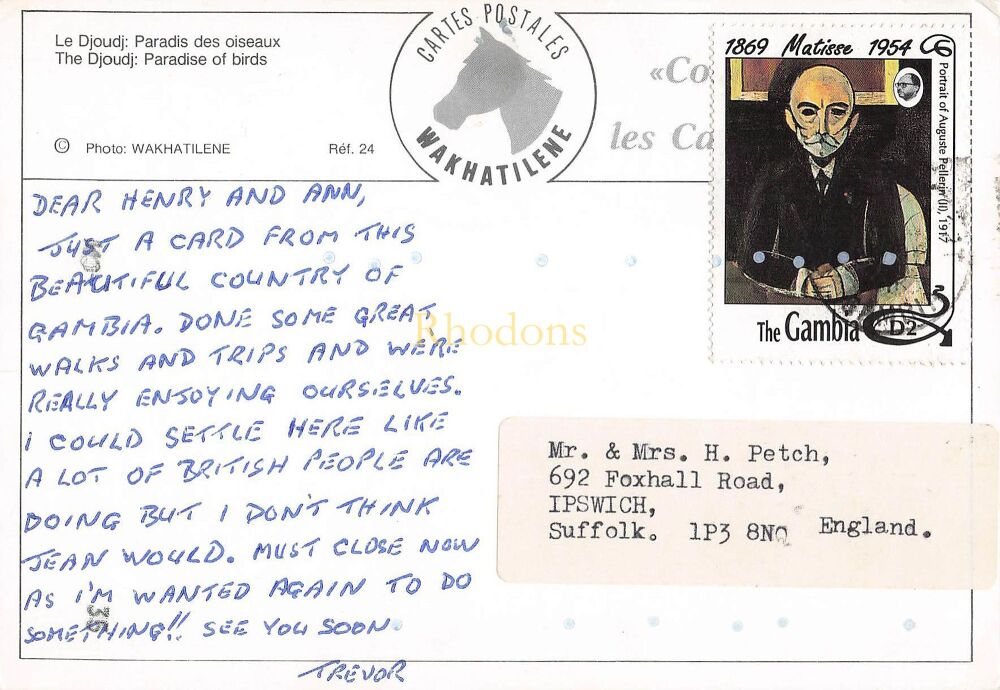 Le Djoudj: Paradis des oiseaux
The Djoudj: Paradise of birds
© Photo: WAKHATILENE
Réf. 24
CARTES POSTALES
WAKHATILENE
«Co
les Ca
1869 Matisse 1954
Portrait of Auguste Pellerin (II), 1917
The Gambia D2
DEAR HENRY AND ANN,
JUST A CARD FROM THIS
BEAUTIFUL COUNTRY OF
GAMBIA. DONE SOME GREAT
WALKS AND TRIPS AND WERE
REALLY ENJOYING OURSELVES.
I COULD SETTLE HERE LIKE
A LOT OF BRITISH PEOPLE ARE
DOING BUT I DON'T THINK
JEAN WOULD. MUST CLOSE NOW
AS I'M WANTED AGAIN TO DO
SOMETHING!! SEE YOU SOON.
TREVOR
Rhodons
Mr. & Mrs. H. Petch,
692 Foxhall Road,
IPSWICH,
Suffolk. 1P3 8NQ England.
36